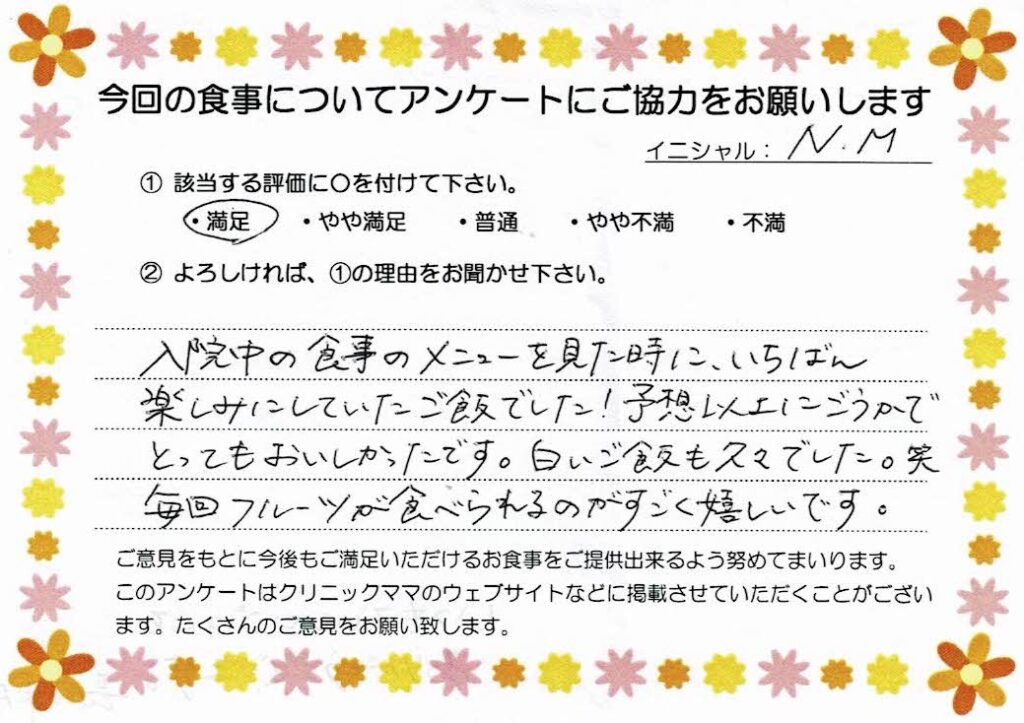 今回の食事についてアンケートにご協力をお願いします
イニシャル： N.M
① 該当する評価に〇を付けて下さい。
・満足 ・やや満足 ・普通 ・やや不満 ・不満
② よろしければ、①の理由をお聞かせ下さい。
入院中の食事のメニューを見た時に、いちばん
楽しみにしていたご飯でした！予想以上にごうかで
とってもおいしかったです。白いご飯も久々でした。笑
毎回フルーツが食べられるのがすごく嬉しいです。
ご意見をもとに今後もご満足いただけるお食事をご提供出来るよう努めてまいります。
このアンケートはクリニックママのウェブサイトなどに掲載させていただくことがござい
ます。たくさんのご意見をお願い致します。